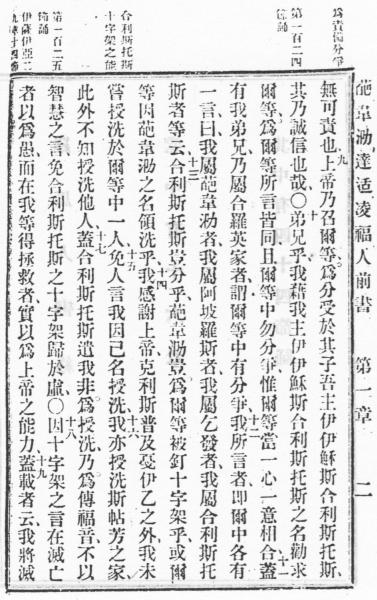 葩韋泐達适凌福人前書 第一章 二
爲責備分爭
第一百二四
節誦
合利斯托斯
十字架之能
第一百二五
節誦
伊薩伊亞二
九章十四節
無可責也、九上帝乃召爾等、爲分受於其子吾主伊伊穌斯合利斯托斯、
其乃誠信也哉〇十弟兄乎、我藉我主伊伊穌斯合利斯托斯之名勸求
爾等、爲爾等所言皆同、且爾等中勿分爭、惟爾等當一心一意相合、十一蓋
有我弟兄、乃屬合羅英家者、謂爾等中有分爭、十二我所言者、即爾中各有
一言曰、我屬葩韋泐者、我屬阿坡羅斯者、我屬乞發者、我屬合利斯托
斯者等云、十三合利斯托斯豈分乎、葩韋泐豈爲爾等被釘十字架乎、或爾
等因葩韋泐之名領洗乎、十四我感謝上帝、克利斯普及憂伊乙之外、我未
嘗授洗於爾等中一人、十五免人言我因己名授洗、十六我亦授洗斯帖芳之家、
此外不知授洗他人、十七蓋合利斯托斯遣我、非爲授洗、乃爲傳福音、不以
智慧之言、免合利斯托斯之十字架歸於虛、〇十八因十字架之言在滅亡
者以爲愚、而在我等得拯救者、實以爲上帝之能力、十九蓋載者云、我將滅